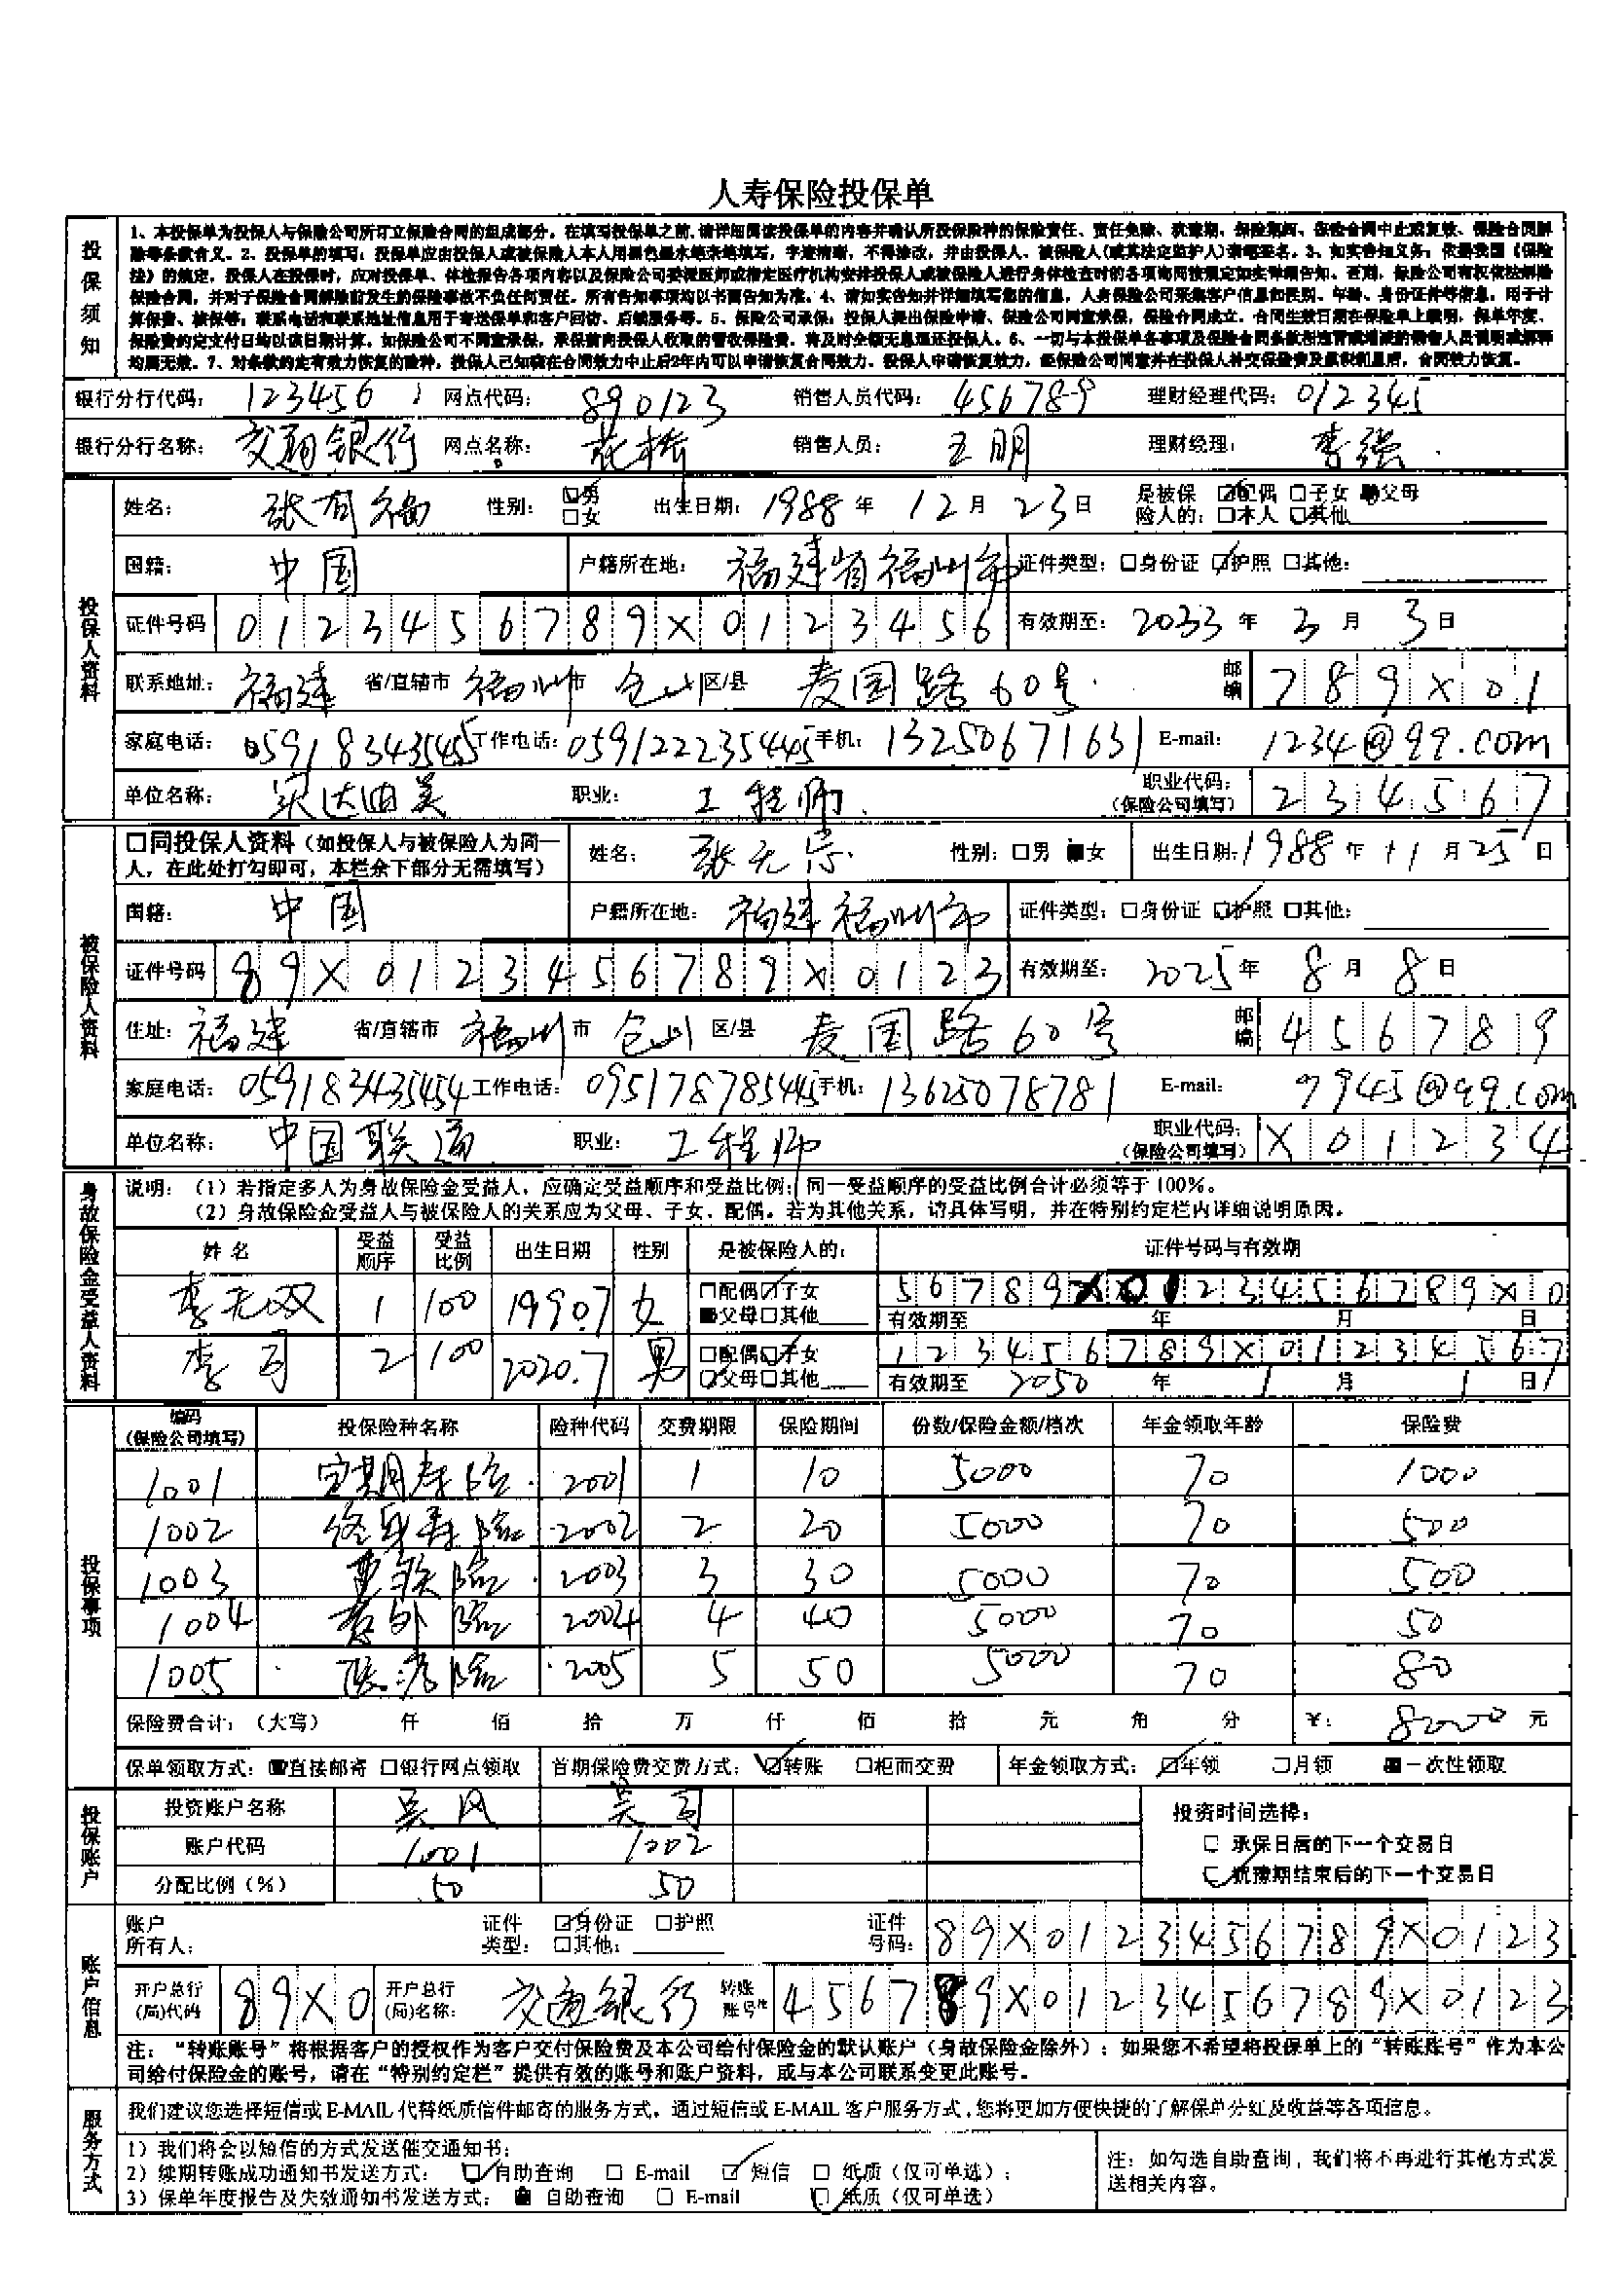 人寿保险投保单
投保须知
1、本投保单为投保人与保险公司所订立保险合同的组成部分。在填写投保单之前,请详细阅读投保单的内容并确认所投保险种的保险责任、责任免除、犹豫期、保险期间、保险合同中止或复效、保险合同解
除等条款含义。2、投保单的填写:投保单应由投保人或被保险人本人用黑色墨水笔亲笔填写,字迹清晰,不得涂改,并由投保人、被保险人(或其法定监护人)亲笔签名。3、如实告知义务:依据我国《保险
法》的规定,投保人在投保时,应对投保单、体检报告各项内容以及保险公司委派医师或指定医疗机构安排投保人或被保险人进行身体检查时的各项询问按规定如实详细告知。否则,保险公司有权依法解除
保险合同,并对于保险合同解除前发生的保险事故不负任何责任。所有告知事项均以书面告知为准。4、请如实告知并详细填写您的信息,人身保险公司采集客户信息如性别、年龄、身份证件等信息,用于计
算保费、核保等;联系电话和联系地址信息用于寄送保单和客户回访、后续服务等。5、保险公司承保:投保人提出保险申请、保险公司同意承保,保险合同成立。合同生效日期在保险单上载明,保单年度、
保险费约定支付日均以该日期计算。如保险公司不同意承保,承保前向投保人收取的暂收保险费,将及时全额无息退还投保人。6、一切与本投保单各事项及保险合同条款相违背或增减的销售人员说明或解释
均属无效。7、对条款约定有效力恢复的险种,投保人已知晓在合同效力中止后2年内可以申请恢复合同效力。投保人申请恢复效力,经保险公司同意并在投保人补交保险费及累积利息后,合同效力恢复。
银行分行代码: 123456 网点代码: 890123 销售人员代码: 456789 理财经理代码: 012345
银行分行名称: 交通银行 网点名称: 花桥 销售人员: 王朋 理财经理: 李强
投保人资料
姓名: 张有福 性别: □男 □女 出生日期: 1988 年 12 月 23 日 是被保险人的: □配偶 □子女 父母 □本人 □其他
国籍: 中国 户籍所在地: 福建省福州市 证件类型: □身份证 □护照 □其他:
证件号码 0123456789X0123456 有效期至: 2033 年 3 月 3 日
联系地址: 福建 省/直辖市 福州 市 仓山 区/县 麦园路60号 邮编 789X01
家庭电话: 059183435455 工作电话: 059122235445 手机: 13250671631 E-mail: 1234@qq.com
单位名称: 实达迪美 职业: 工程师 职业代码: (保险公司填写) 234567
被保险人资料
□同投保人资料(如投保人与被保险人为同一人,在此处打勾即可,本栏余下部分无需填写) 姓名: 张无忌 性别: □男 女 出生日期: 1988 年 11 月 25 日
国籍: 中国 户籍所在地: 福建福州市 证件类型: □身份证 □护照 □其他:
证件号码 89X0123456789X0123 有效期至: 2025 年 8 月 8 日
住址: 福建 省/直辖市 福州 市 仓山 区/县 麦园路60号 邮编 456789
家庭电话: 059183435454 工作电话: 095178785445 手机: 13625078781 E-mail: 7945@qq.com
单位名称: 中国联通 职业: 工程师 职业代码: (保险公司填写) X01234
身故保险金受益人资料
说明:(1)若指定多人为身故保险金受益人,应确定受益顺序和受益比例;同一受益顺序的受益比例合计必须等于100%。
(2)身故保险金受益人与被保险人的关系应为父母、子女、配偶。若为其他关系,请具体写明,并在特别约定栏内详细说明原因。
姓名 受益顺序 受益比例 出生日期 性别 是被保险人的: 证件号码与有效期
李无双 1 100 1990.7 女 □配偶 □子女 父母 □其他 56789X0123456789X0
有效期至 年 月 日
李司 2 100 2020.7 男 □配偶 □子女 □父母 □其他 123456789X01234567
有效期至 2050 年 1 月 1 日
投保事项
编码(保险公司填写) 投保险种名称 险种代码 交费期限 保险期间 份数/保险金额/档次 年金领取年龄 保险费
1001 定期寿险 2001 1 10 5000 70 1000
1002 终身寿险 2002 2 20 5000 70 500
1003 重疾险 2003 3 30 5000 70 500
1004 意外险 2004 4 40 5000 70 50
1005 医疗险 2005 5 50 5000 70 80
保险费合计:(大写) 仟 佰 拾 万 仟 佰 拾 元 角 分 ¥: 82000 元
保单领取方式: 直接邮寄 □银行网点领取 首期保险费交费方式: □转账 □柜面交费 年金领取方式: □年领 □月领 一次性领取
投保账户
投资账户名称 吴风 吴司 投资时间选择:
账户代码 1001 1002 □ 承保日后的下一个交易日
分配比例(%) 50 50 □ 犹豫期结束后的下一个交易日
账户信息
账户所有人: 证件类型: □身份证 □护照 □其他: 证件号码: 89X0123456789X0123
开户总行(局)代码 89X0 开户总行(局)名称: 交通银行 转账账号 456789X0123456789X0123
注:“转账账号”将根据客户的授权作为客户交付保险费及本公司给付保险金的默认账户(身故保险金除外);如果您不希望将投保单上的“转账账号”作为本公
司给付保险金的账号,请在“特别约定栏”提供有效的账号和账户资料,或与本公司联系变更此账号。
服务方式
我们建议您选择短信或 E-MAIL 代替纸质信件邮寄的服务方式。通过短信或 E-MAIL 客户服务方式,您将更加方便快捷的了解保单分红及收益等各项信息。
1)我们将会以短信的方式发送催交通知书;
2)续期转账成功通知书发送方式: □ 自助查询 □ E-mail □ 短信 □ 纸质(仅可单选);
3)保单年度报告及失效通知书发送方式: 自助查询 □ E-mail □ 纸质(仅可单选)
注:如勾选自助查询,我们将不再进行其他方式发
送相关内容。